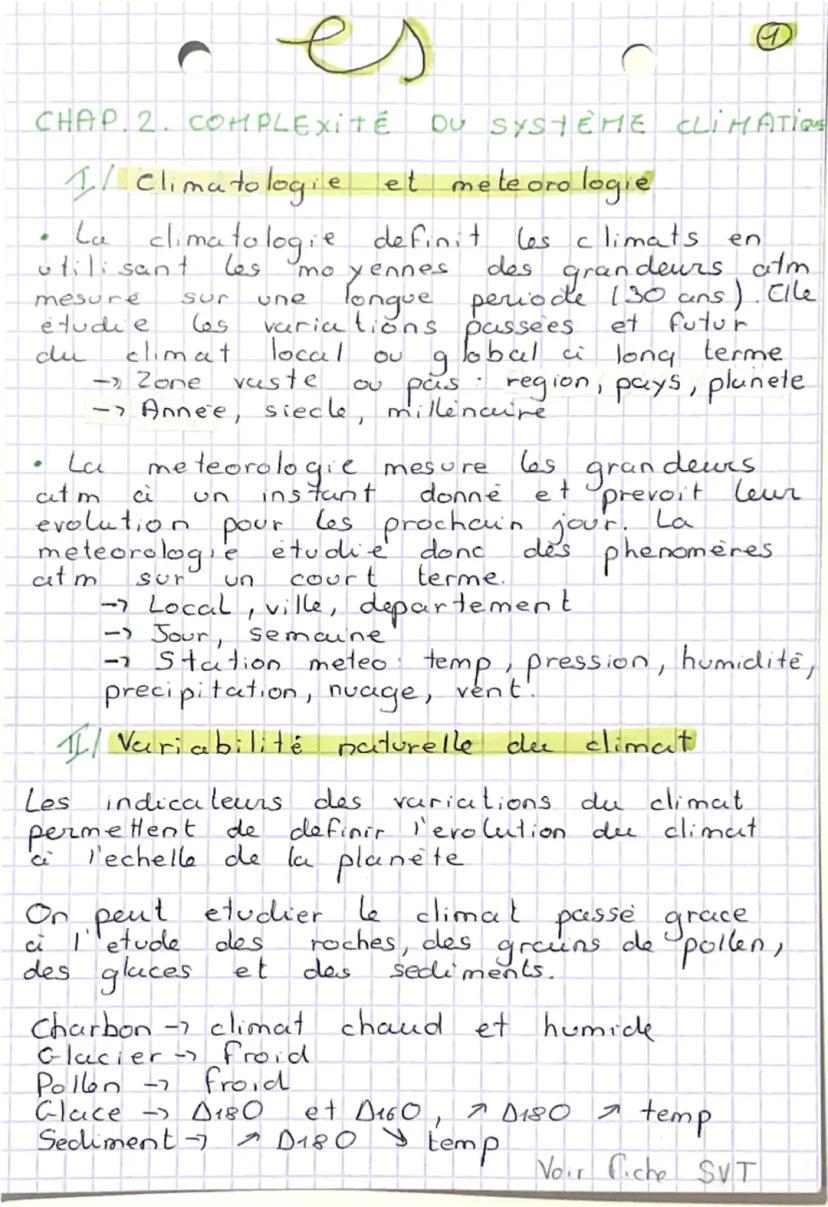 es
1
CHAP.2. COMPLEXITÉ DU SYSTÈME CLIMATIQUE
I/ Climatologie et meteorologie
• La climatologie definit les climats en
utilisant les moyennes des grandeurs atm
mesure sur une longue periode (30 ans). Elle
étudie les variations passées et futur
du climat local ou global à long terme
→ Zone vaste ou pas : region, pays, planete
→ Année, siecle, millénaire
• La meteorologie mesure les grandeurs
atm à un instant donné et prevoit leur
evolution pour les prochain jour. La
meteorologie étudie donc des phenomères
atm sur un court terme.
→ Local, ville, departement
→ Jour, semaine
→ Station meteo : temp, pression, humidité,
precipitation, nuage, vent.
II/ Variabilité naturelle du climat
Les indicateurs des variations du climat
permettent de definir l'evolution du climat
à l'echelle de la planète
On peut etudier le climat passé grace
à l'etude des roches, des grains de pollen,
des glaces et des sediments.
Charbon → climat chaud et humide
Glacier → froid
Pollen → froid
Glace → Δ18O et Δ16O, ↗ Δ18O ↗ temp
Sediment → ↗ Δ18O ↘ temp
Voir fiche SVT